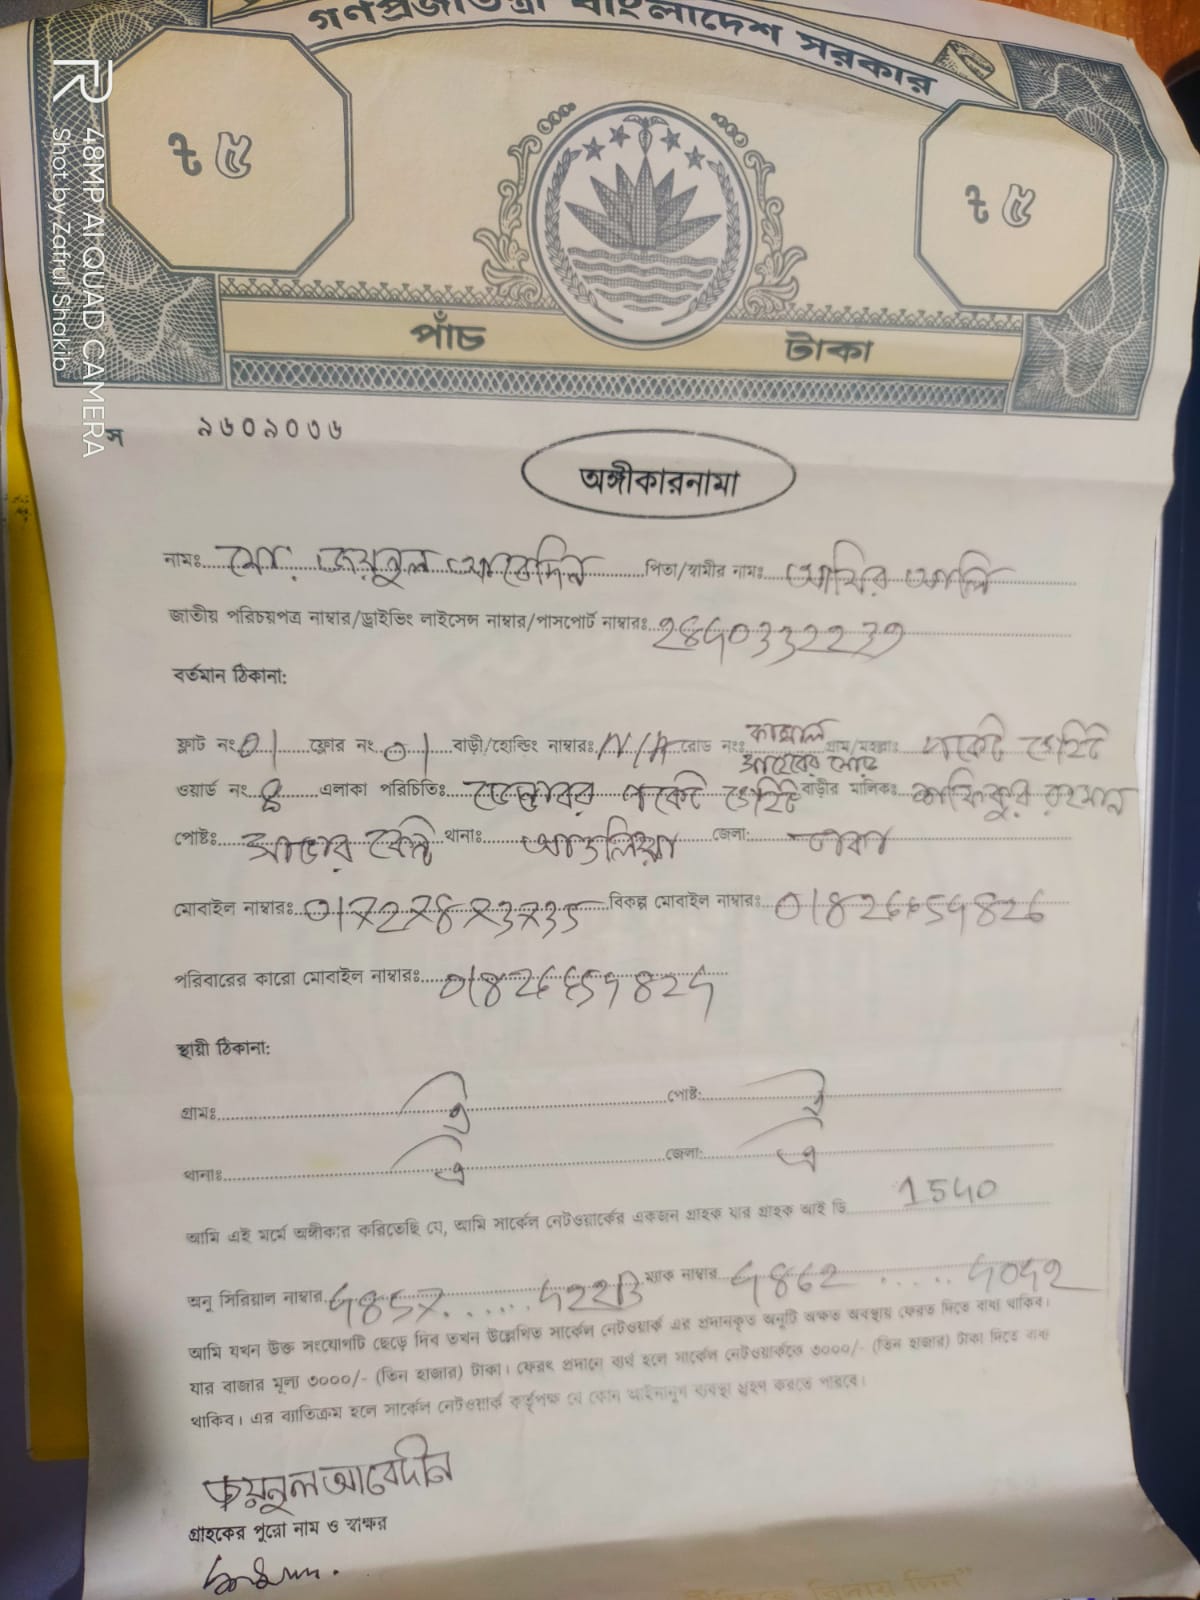 গণপ্রজাতন্ত্রী বাংলাদেশ সরকার
৳ ৫ ৳ ৫
পাঁচ টাকা
48MP AI QUAD CAMERA
Shot by Zafrul Shakib
স ৯৬০৯০৩৬
অঙ্গীকারনামা
নামঃ মো. জয়নুল আবেদিন পিতা/স্বামীর নামঃ আমির আলি
জাতীয় পরিচয়পত্র নাম্বার/ড্রাইভিং লাইসেন্স নাম্বার/পাসপোর্ট নাম্বারঃ
বর্তমান ঠিকানা:
ফ্লাট নং 01 ফ্লোর নং 01 বাড়ী/হোল্ডিং নাম্বারঃ N/A রোড নংঃ গ্রাম/মহল্লাঃ পকেট গেইট
ওয়ার্ড নং এলাকা পরিচিতিঃ পকেট গেইট বাড়ীর মালিকঃ রহমান
পোষ্টঃ সাভার কেন্ট থানাঃ আশুলিয়া জেলা: ঢাকা
মোবাইল নাম্বারঃ বিকল্প মোবাইল নাম্বারঃ
পরিবারের কারো মোবাইল নাম্বারঃ
স্থায়ী ঠিকানা:
গ্রামঃ ঐ পোষ্ট: ঐ
থানাঃ ঐ জেলা: ঐ
আমি এই মর্মে অঙ্গীকার করিতেছি যে, আমি সার্কেল নেটওয়ার্কের একজন গ্রাহক যার গ্রাহক আই ডি 1540
অনু সিরিয়াল নাম্বার ম্যাক নাম্বার
আমি যখন উক্ত সংযোগটি ছেড়ে দিব তখন উল্লেখিত সার্কেল নেটওয়ার্ক এর প্রদানকৃত অনুটি অক্ষত অবস্থায় ফেরত দিতে বাধ্য থাকিব।
যার বাজার মূল্য ৩০০০/- (তিন হাজার) টাকা। ফেরৎ প্রদানে ব্যর্থ হলে সার্কেল নেটওয়ার্কতে ৩০০০/- (তিন হাজার) টাকা দিতে বাধ্য
থাকিব। এর ব্যতিক্রম হলে সার্কেল নেটওয়ার্ক কর্তৃপক্ষ যে কোন আইনানুগ ব্যবস্থা গ্রহন করতে পারবে।
জয়নুল আবেদীন
গ্রাহকের পুরো নাম ও স্বাক্ষর